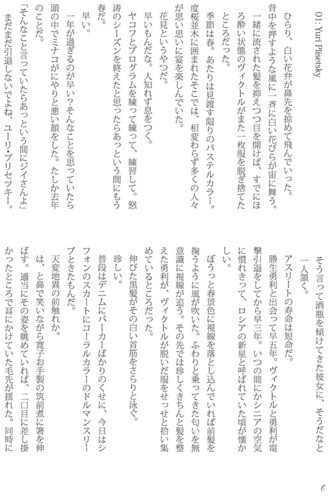 01: Yuri Plisetsky
ひらり、白い花弁が鼻先を掠めて飛んでいった。
背中を押すような風に一斉に白い花びらが宙に舞う。
一緒に流された髪を抑えつつ目を開けば、すでにほ
ろ酔い状態のヴィクトルがまた一枚服を脱ぎ捨てた
ところだった。
季節は春。あたりは見渡す限りのパステルカラー。
度桜並木に囲まれたそこでは、相変わらず多くの人々
が思い思いに宴を楽しんでいた。
花見というやつだ。
早いもんだな。人知れず息をつく。
ヤコフとプログラムを練って練って、練習して。怒
涛のシーズンを終えたと思ったらあっという間にもう
春だ。
早い。
一年が過ぎるのが早い？そんなことを思っていたら
頭の中でミナコがにやりと悪い顔をした。たしか去年
のことだ。
「そんなこと言っていたらあっという間にジイさんよ」
まだまだ引退しないでよね、ユーリ・プリセツキー。
そう言って酒瓶を傾けてきた彼女に、そうだなと
一人頷く。
アスリートの寿命は短命だ。
勝生勇利と出会って早五年。ヴィクトルと勇利が電
撃引退をしてから早三年。いつの間にかシニアの空気
に慣れきって、ロシアの新星と呼ばれていた頃が懐か
しい。
ぼうっと春景色に視線を落とし込んでいれば前髪を
掬うように風が吹いた。ふわりと乗ってきた匂いを無
意識に視線が追う。その先では珍しくきちんと髪を整
えた勇利が、ヴィクトルが脱いだ服をせっせと拾い集
めているところだった。
伸びた黒髪がその白い首筋をさらりと泳ぐ。
珍しい。
普段はデニムにパーカーばかりのくせに、今日はシ
フォンのスカートにコーラルカラーのドルマンスリー
ブときたもんだ。
天変地異の前触れか。
は、と鼻で笑いながら寛子お手製の筑前煮に箸を伸
ばす。適当にその姿を眺めていれば、二口目に差し掛
かったところで耳にかけていた毛先が揺れた。同時に
6